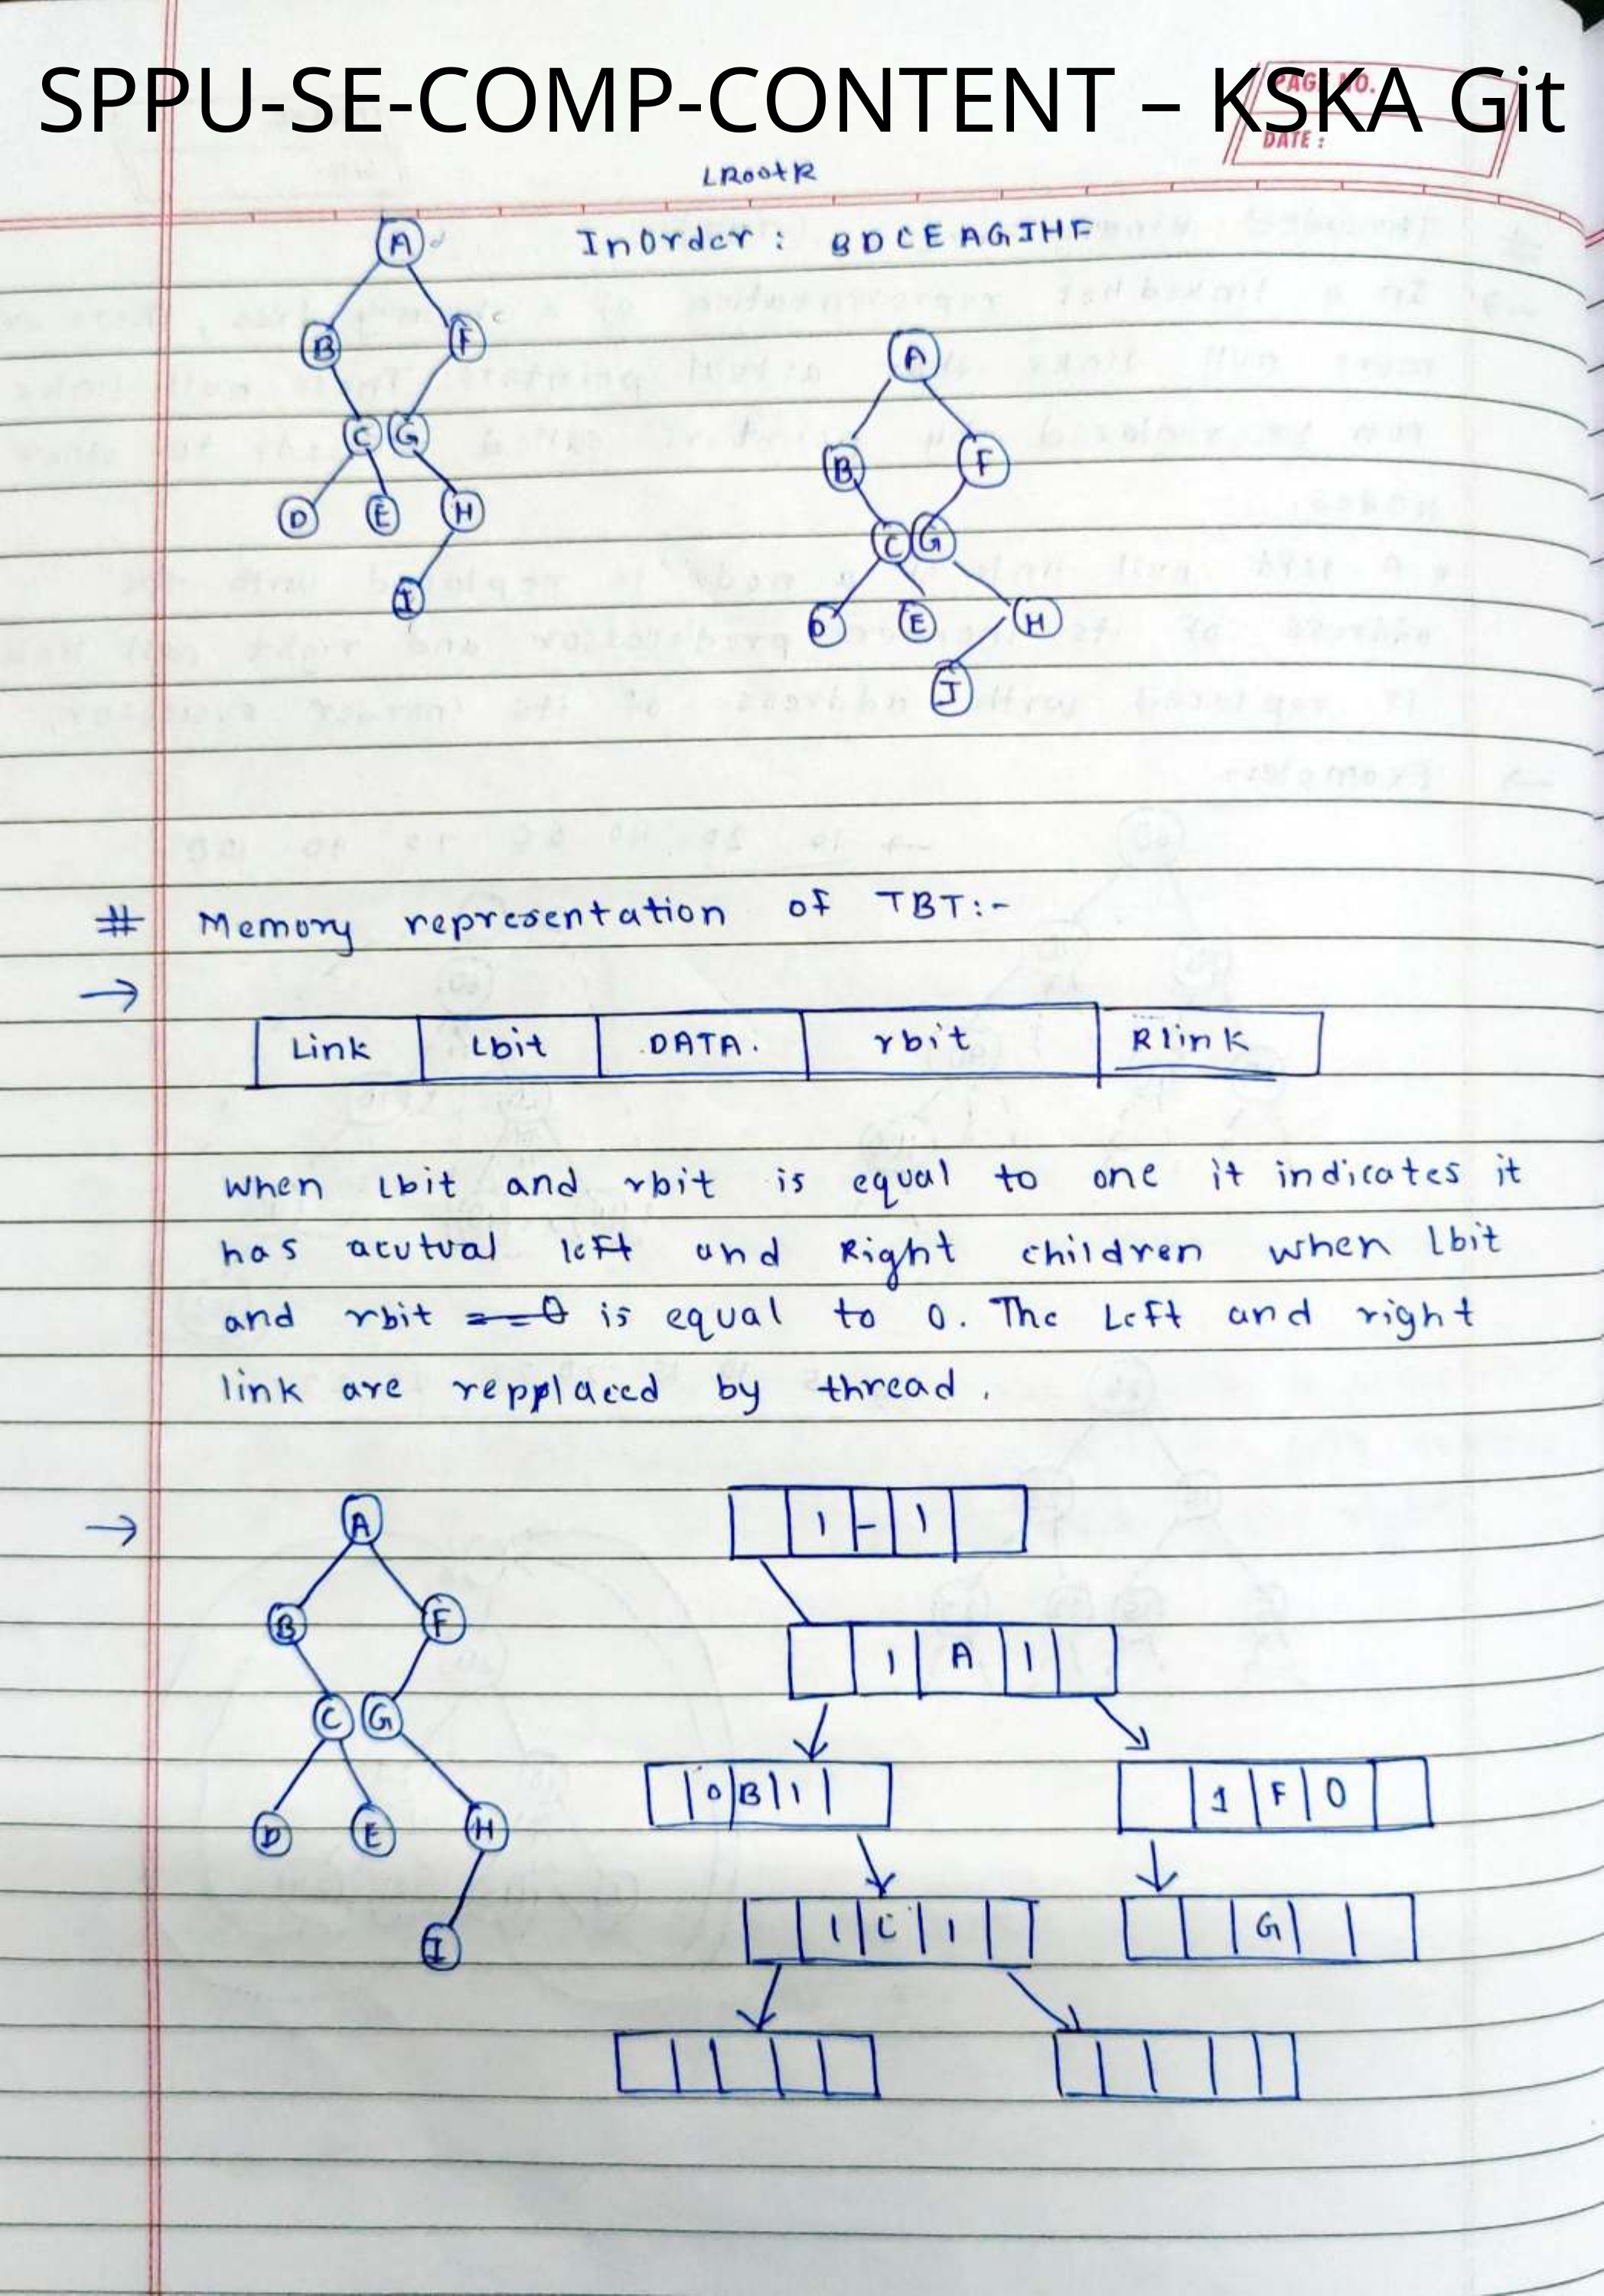 SPPU-SE-COMP-CONTENT – KSKA Git
PAGE NO.
DATE :
LRootR
InOrder : BDCEAGIHF
A
B F
C G
D E H
I
A
B F
C G
D E H
I
# Memory representation of TBT:-
→
Link Lbit DATA. rbit Rlink
When lbit and rbit is equal to one it indicates it
has acutual left and Right children when lbit
and rbit is equal to 0. The Left and right
link are repplaced by thread.
→
A
B F
C G
D E H
I
1 - 1
1 A 1
0 B 1 1 F 0
1 C 1 G